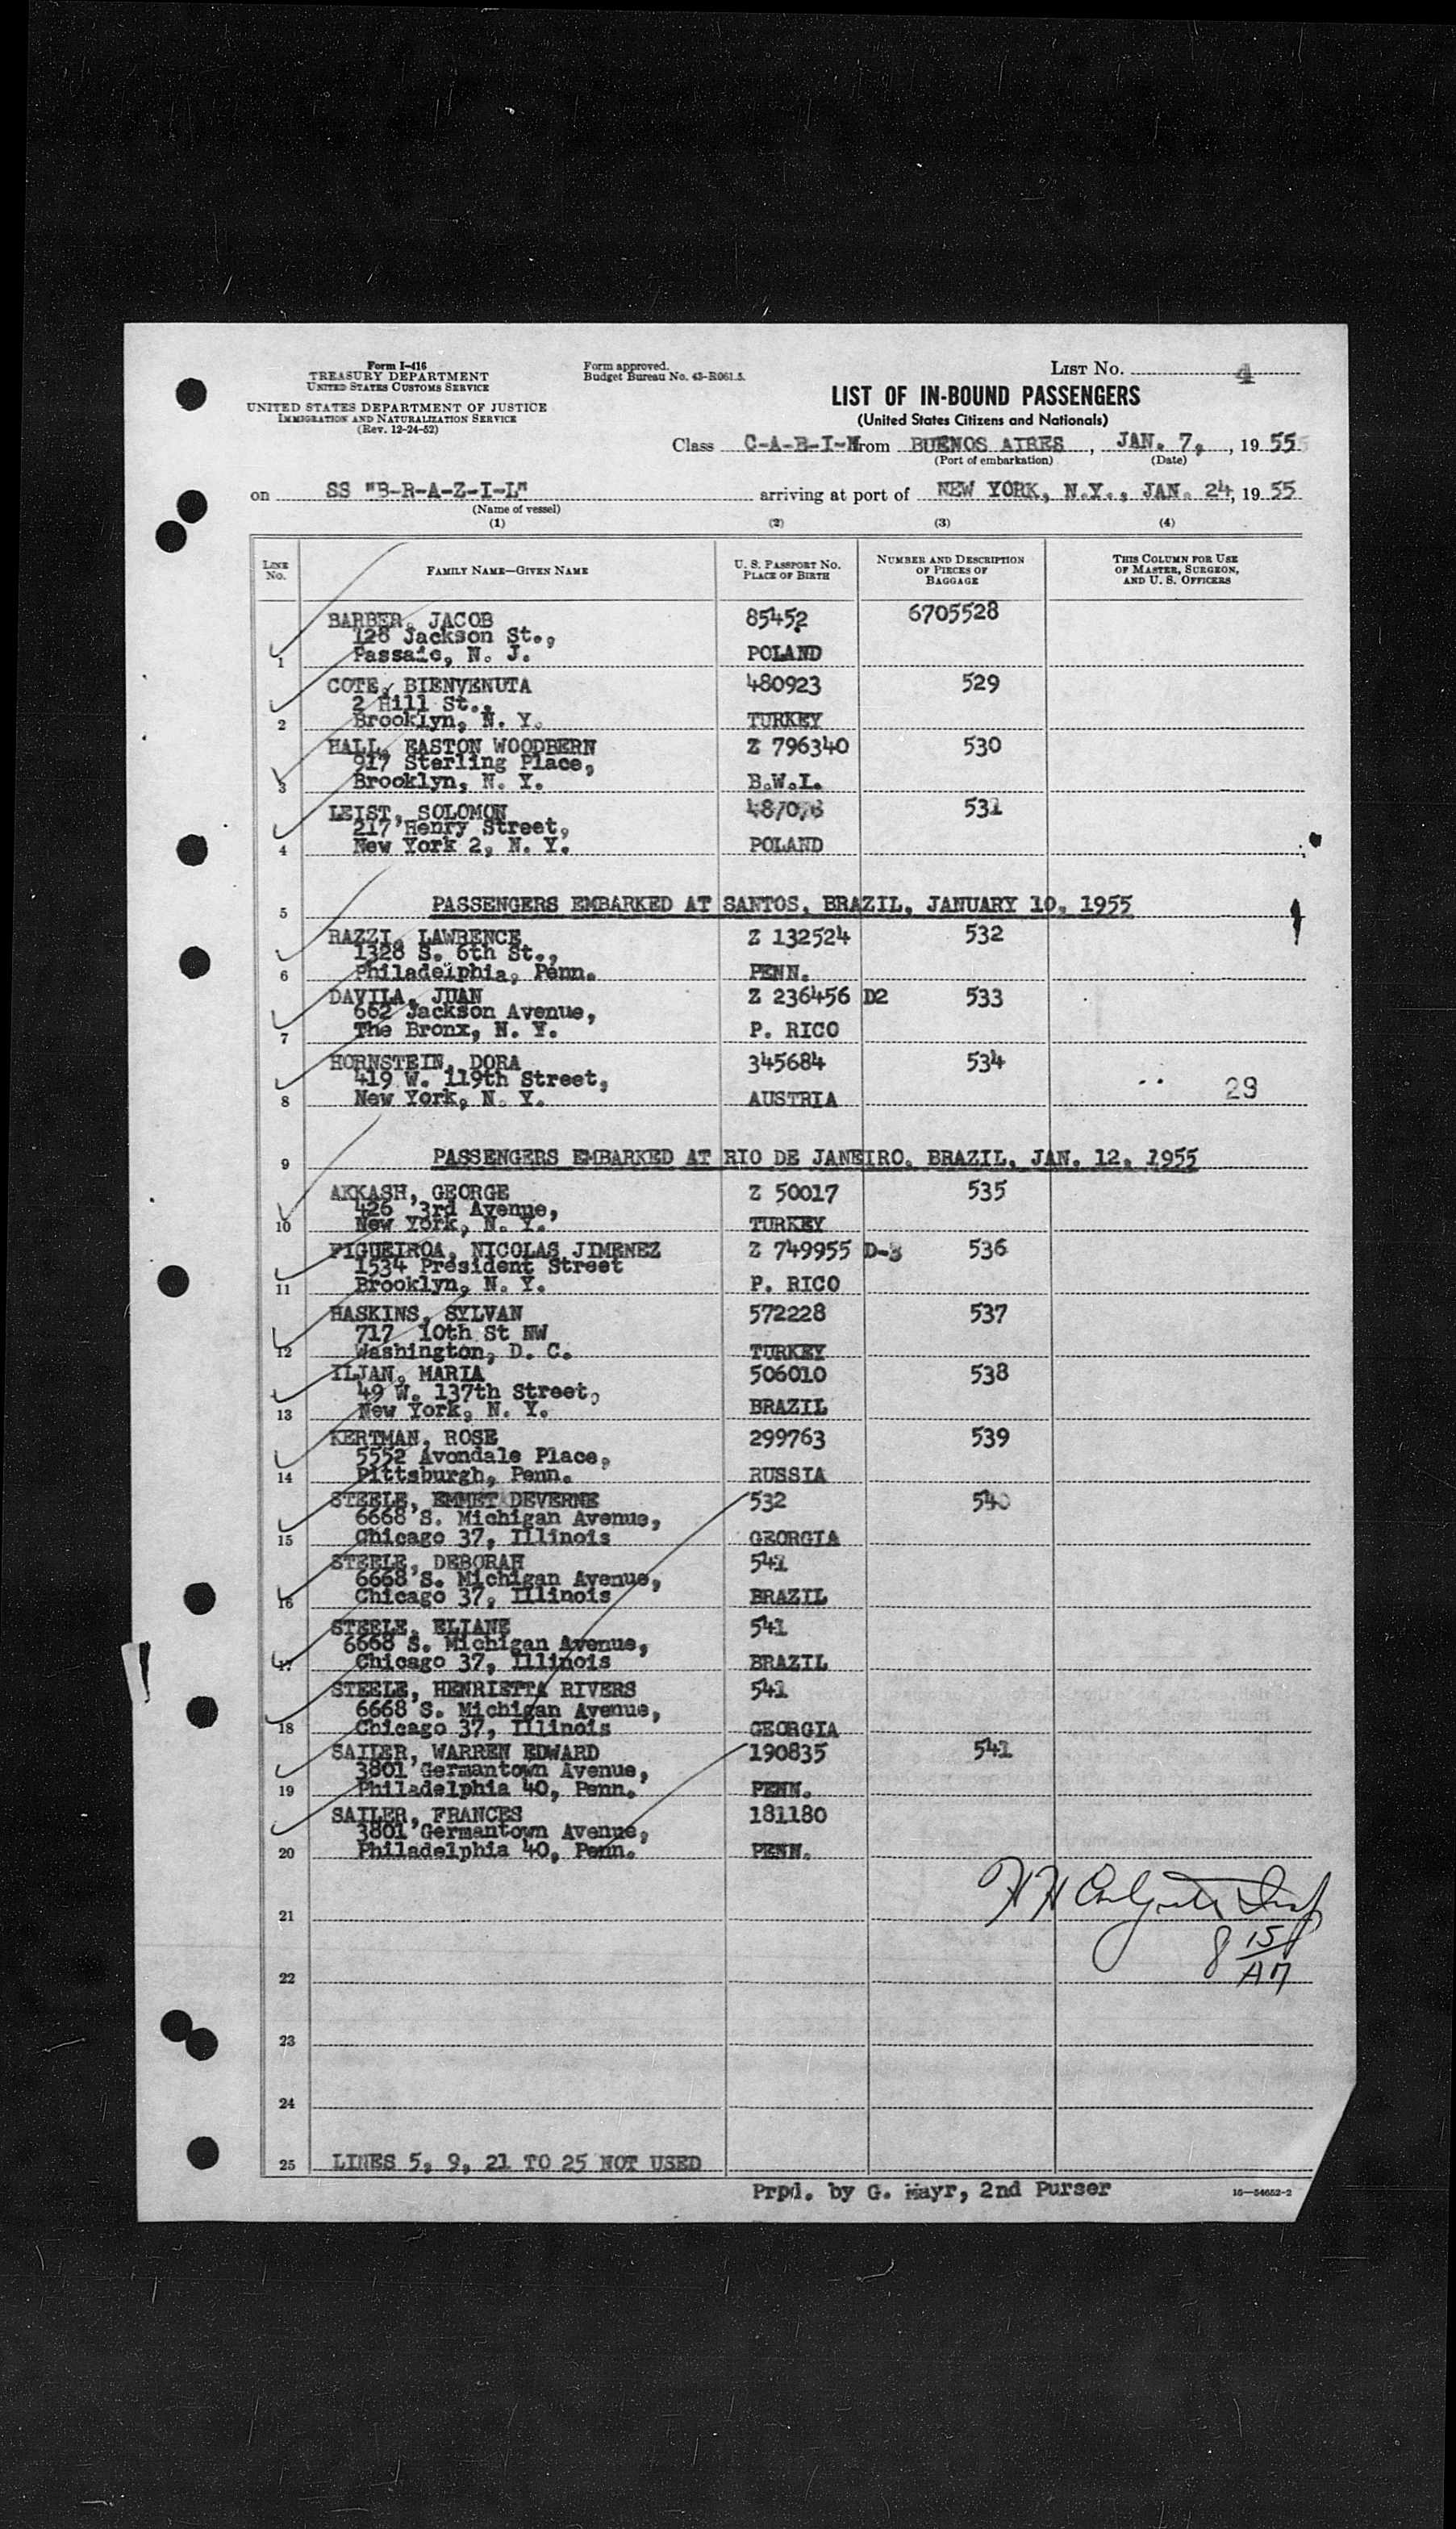 Form I-416
TREASURY DEPARTMENT
UNITED STATES CUSTOMS SERVICE
UNITED STATES DEPARTMENT OF JUSTICE
IMMIGRATION AND NATURALIZATION SERVICE
(Rev. 12-24-52)
Form approved.
Budget Bureau No. 43-R061.5.
LIST NO. 4
LIST OF IN-BOUND PASSENGERS
(United States Citizens and Nationals)
Class C-A-B-I-N from BUENOS AIRES, JAN. 7, , 1955
(Port of embarkation) (Date)
on SS "B-R-A-Z-I-L" arriving at port of NEW YORK, N.Y., JAN. 24, 1955
(Name of vessel)
(1) (2) (3) (4)
LINE NO. FAMILY NAME—GIVEN NAME U. S. PASSPORT NO. PLACE OF BIRTH NUMBER AND DESCRIPTION OF PIECES OF BAGGAGE THIS COLUMN FOR USE OF MASTER, SURGEON, AND U. S. OFFICERS
BARBER, JACOB 85452 6705528
128 Jackson St.,
1 Passaic, N. J. POLAND
COTE, BIENVENUTA 480923 529
2 Hill St.,
2 Brooklyn, N. Y. TURKEY
HALL, EASTON WOODBERN Z 796340 530
917 Sterling Place,
3 Brooklyn, N. Y. B.W.I.
LEIST, SOLOMON 531
217 Henry Street,
4 New York 2, N. Y. POLAND
5 PASSENGERS EMBARKED AT SANTOS, BRAZIL, JANUARY 10, 1955
RAZZI, LAWRENCE Z 132524 532
1328 S. 6th St.,
6 Philadelphia, Penn. PENN.
DAVILA, JUAN Z 236456 D2 533
662 Jackson Avenue,
7 The Bronx, N. Y. P. RICO
HORNSTEIN, DORA 345684 534
419 W. 119th Street, 29
8 New York, N. Y. AUSTRIA
9 PASSENGERS EMBARKED AT RIO DE JANEIRO, BRAZIL, JAN. 12, 1955
AKKASH, GEORGE Z 50017 535
426 3rd Avenue,
10 New York, N. Y. TURKEY
FIGUEIROA, NICOLAS JIMENEZ Z 749955 D-3 536
1534 President Street
11 Brooklyn, N. Y. P. RICO
HASKINS, SYLVAN 572228 537
717 10th St NW
12 Washington, D. C. TURKEY
ILJAN, MARIA 506010 538
49 W. 137th Street,
13 New York, N. Y. BRAZIL
KERTMAN, ROSE 299763 539
5552 Avondale Place,
14 Pittsburgh, Penn. RUSSIA
STEELE, EMMET DEVERNE 532 540
6668 S. Michigan Avenue,
15 Chicago 37, Illinois GEORGIA
STEELE, DEBORAH 541
6668 S. Michigan Avenue,
16 Chicago 37, Illinois BRAZIL
STEELE, ELIANE 541
6668 S. Michigan Avenue,
17 Chicago 37, Illinois BRAZIL
STEELE, HENRIETTA RIVERS 541
6668 S. Michigan Avenue,
18 Chicago 37, Illinois GEORGIA
SAILER, WARREN EDWARD 190835 541
3801 Germantown Avenue,
19 Philadelphia 40, Penn. PENN.
SAILER, FRANCES 181180
3801 Germantown Avenue,
20 Philadelphia 40, Penn. PENN.
21
8 15
AM
22
23
24
25 LINES 5, 9, 21 TO 25 NOT USED
Prpd. by G. Mayr, 2nd Purser 16—54652-2